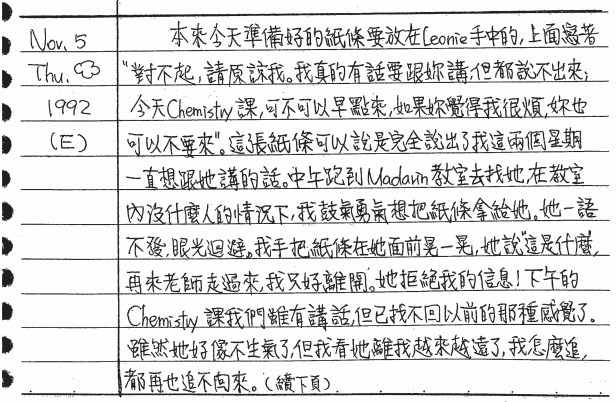 Nov. 5 本來今天準備好的紙條要放在Leonie手中的,上面寫著
Thu. "對不起,請原諒我。我真的有話要跟妳講,但都說不出來,
1992 今天Chemistry課,可不可以早點來,如果妳覺得我很煩,妳也
(E) 可以不要來"。這張紙條可以說是完全說出了我這兩個星期
一直想跟她講的話。中午跑到Madarin教室去找她,在教室
內沒什麼人的情況下,我鼓氣勇氣想把紙條拿給她。她一語
不發,眼光迴避。我手把紙條在她面前晃一晃,她說"這是什麼,
再來老師走過來,我只好離開。她拒絕我的信息!下午的
Chemistry 課我們雖有講話,但已找不回以前的那種感覺了。
雖然她好像不生氣了,但我看她離我越來越遠了,我怎麼追,
都再也追不回來。(續下頁)